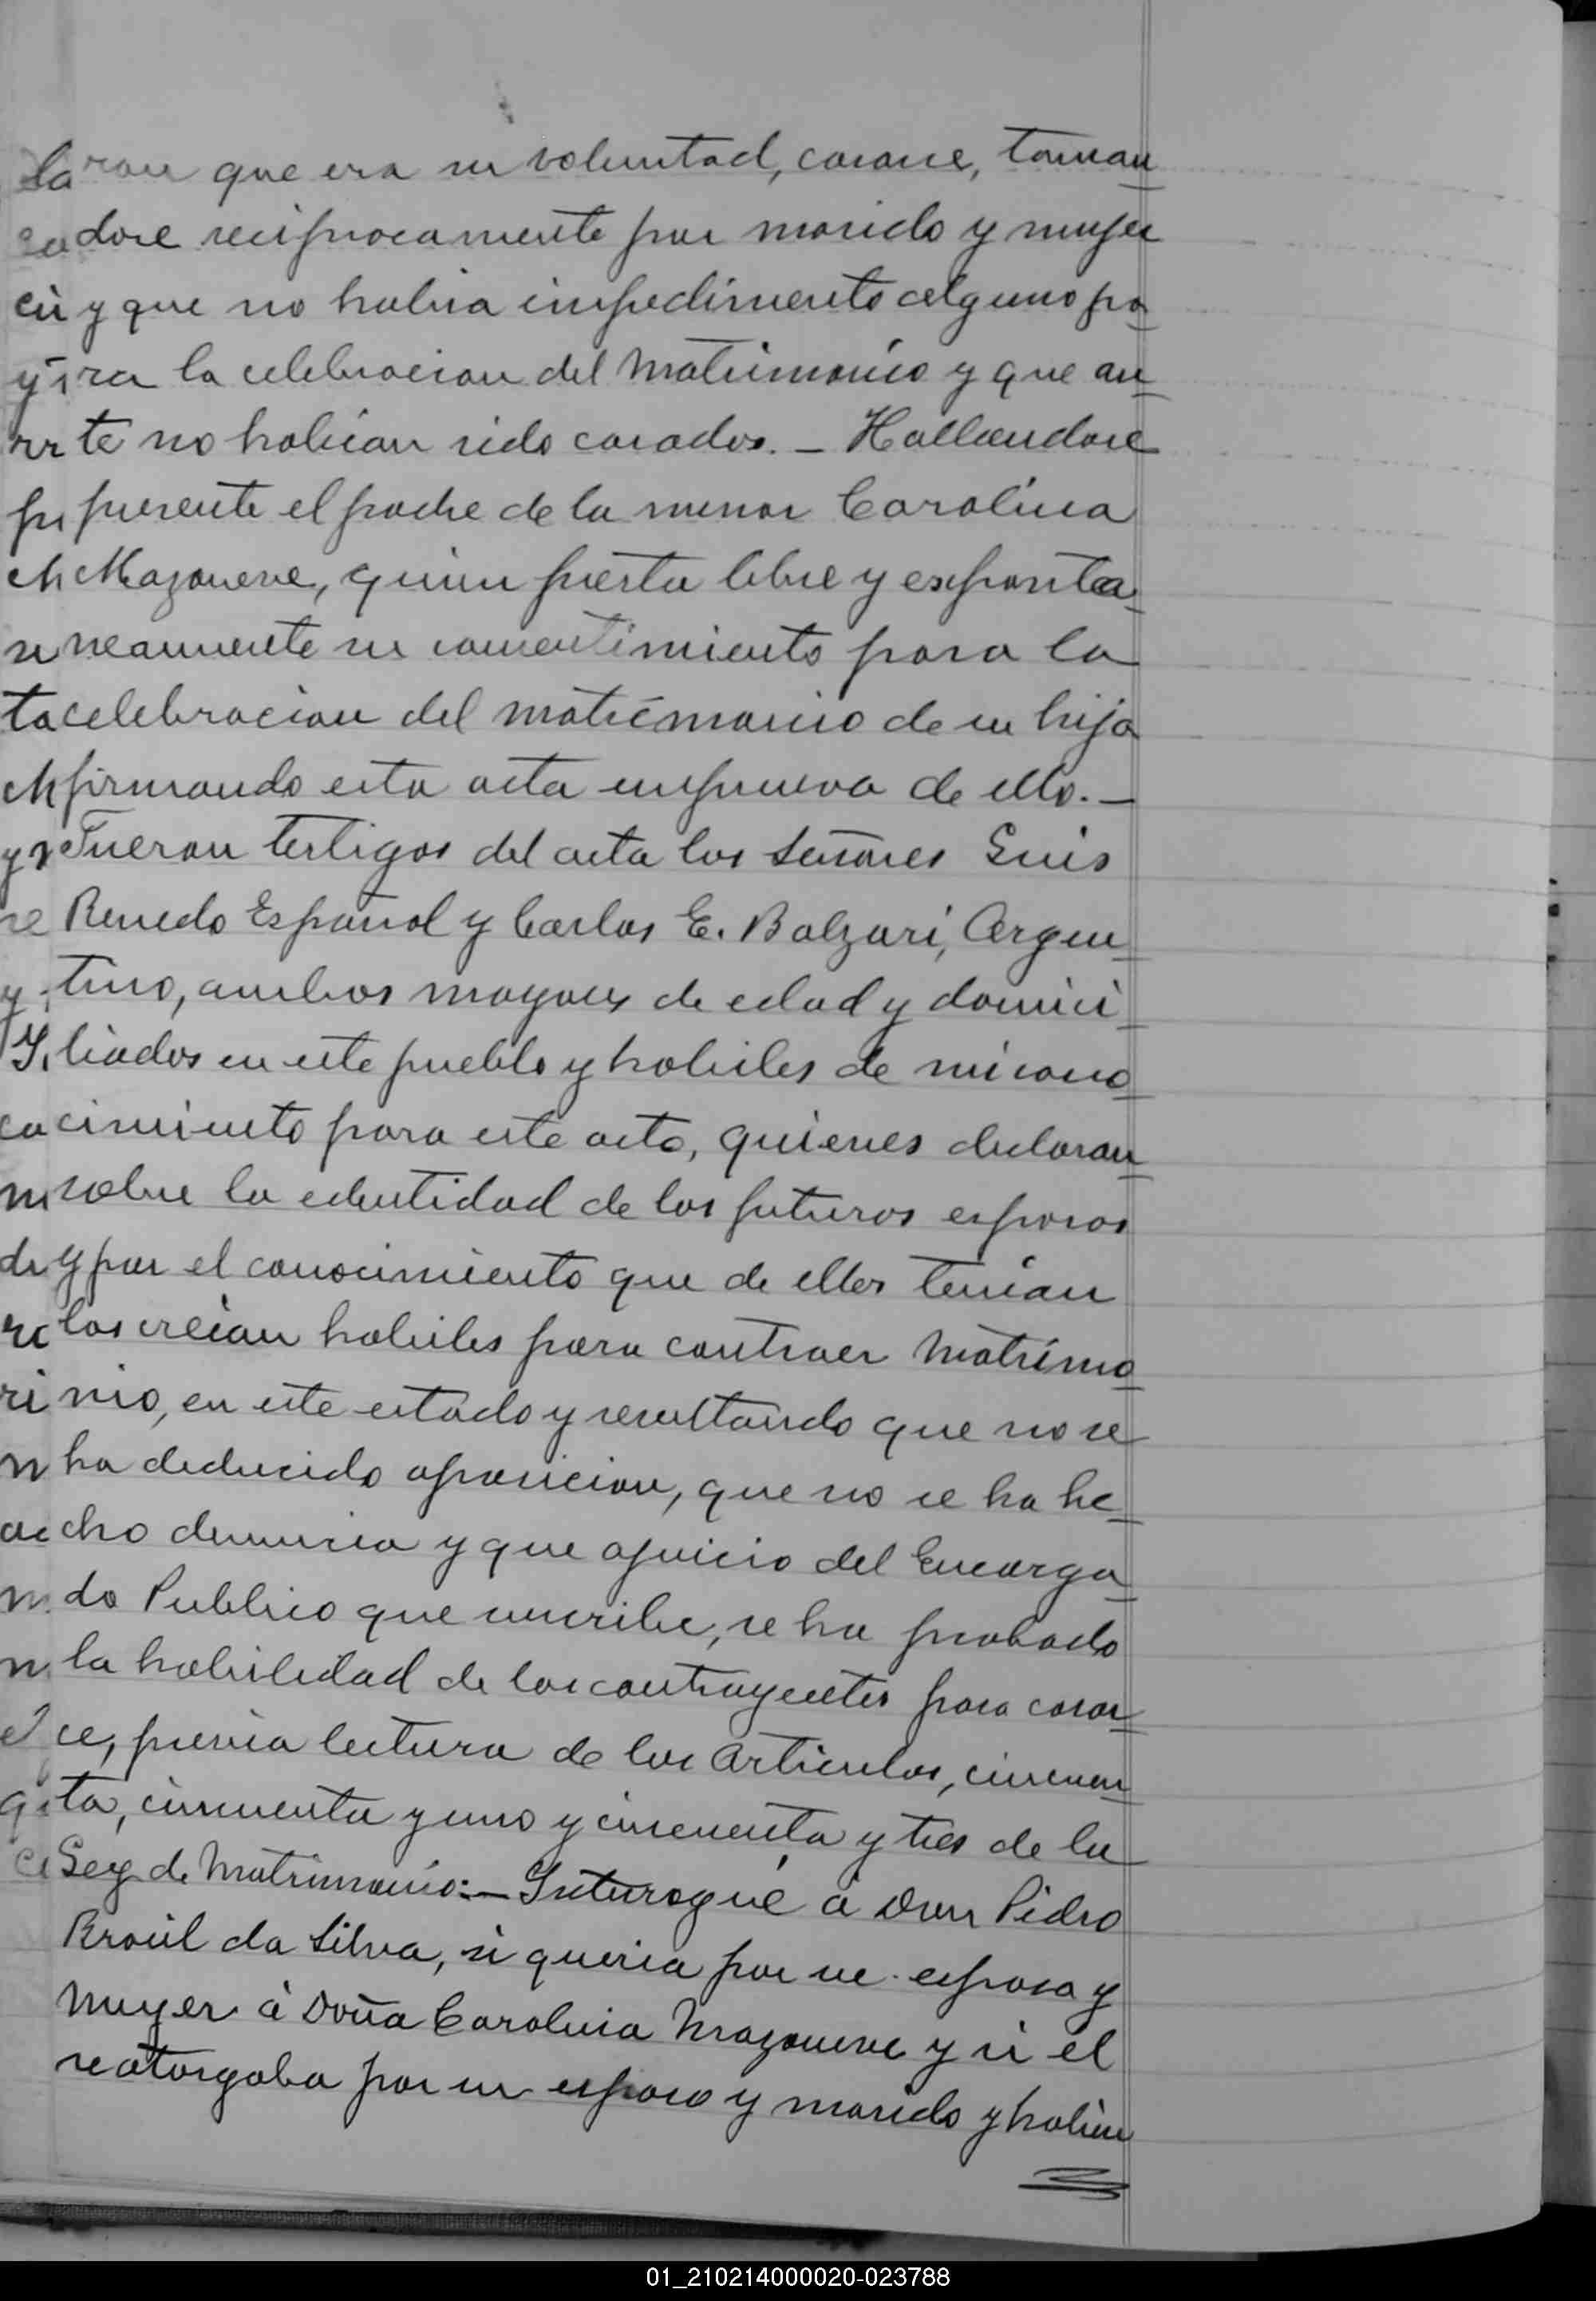 raron que era su voluntad, casarse, toman
dose reciprocamente por marido y mujer
y que no habia impedimento alguno pa
ra la celebracion del Matrimonio y que an
te no habian sido casados. – Hallandose
presente el padre de la menor Carolina
Mazoneve, quien presta libre y esponta
neamente su consentimiento para la
celebracion del matrimonio de su hija
firmando esta acta en prueva de ello. –
Fueron testigos del acta los Señores Luis
Renedo Español y Carlos E. Balzari, Argen
tino, ambos mayores de edad y domici
liados en este pueblo y habiles de mi cono
cimiento para este acto, quienes declaran
sobre la edentidad de los futuros esposos
y por el conocimiento que de ellos tenian
los creian habiles para contraer Matrimo
nio, en este estado y resultando que no se
ha deducido oposicion, que no se ha he
cho denuncia y que a juicio del Encarga
do Publico que suscribe, se ha probado
la habilidad de los contrayentes para casar
se, previa lectura de los Articulos, cincuen
ta, cincuenta y uno y cincuenta y tres de la
Ley de Matrimonio: – Interogué á Don Pedro
Brasil da Silva, si queria por su esposa y
Muger á Doña Carolina Mazoneve y si él
se otorgaba por su esposo y marido y habien
01_210214000020-023788